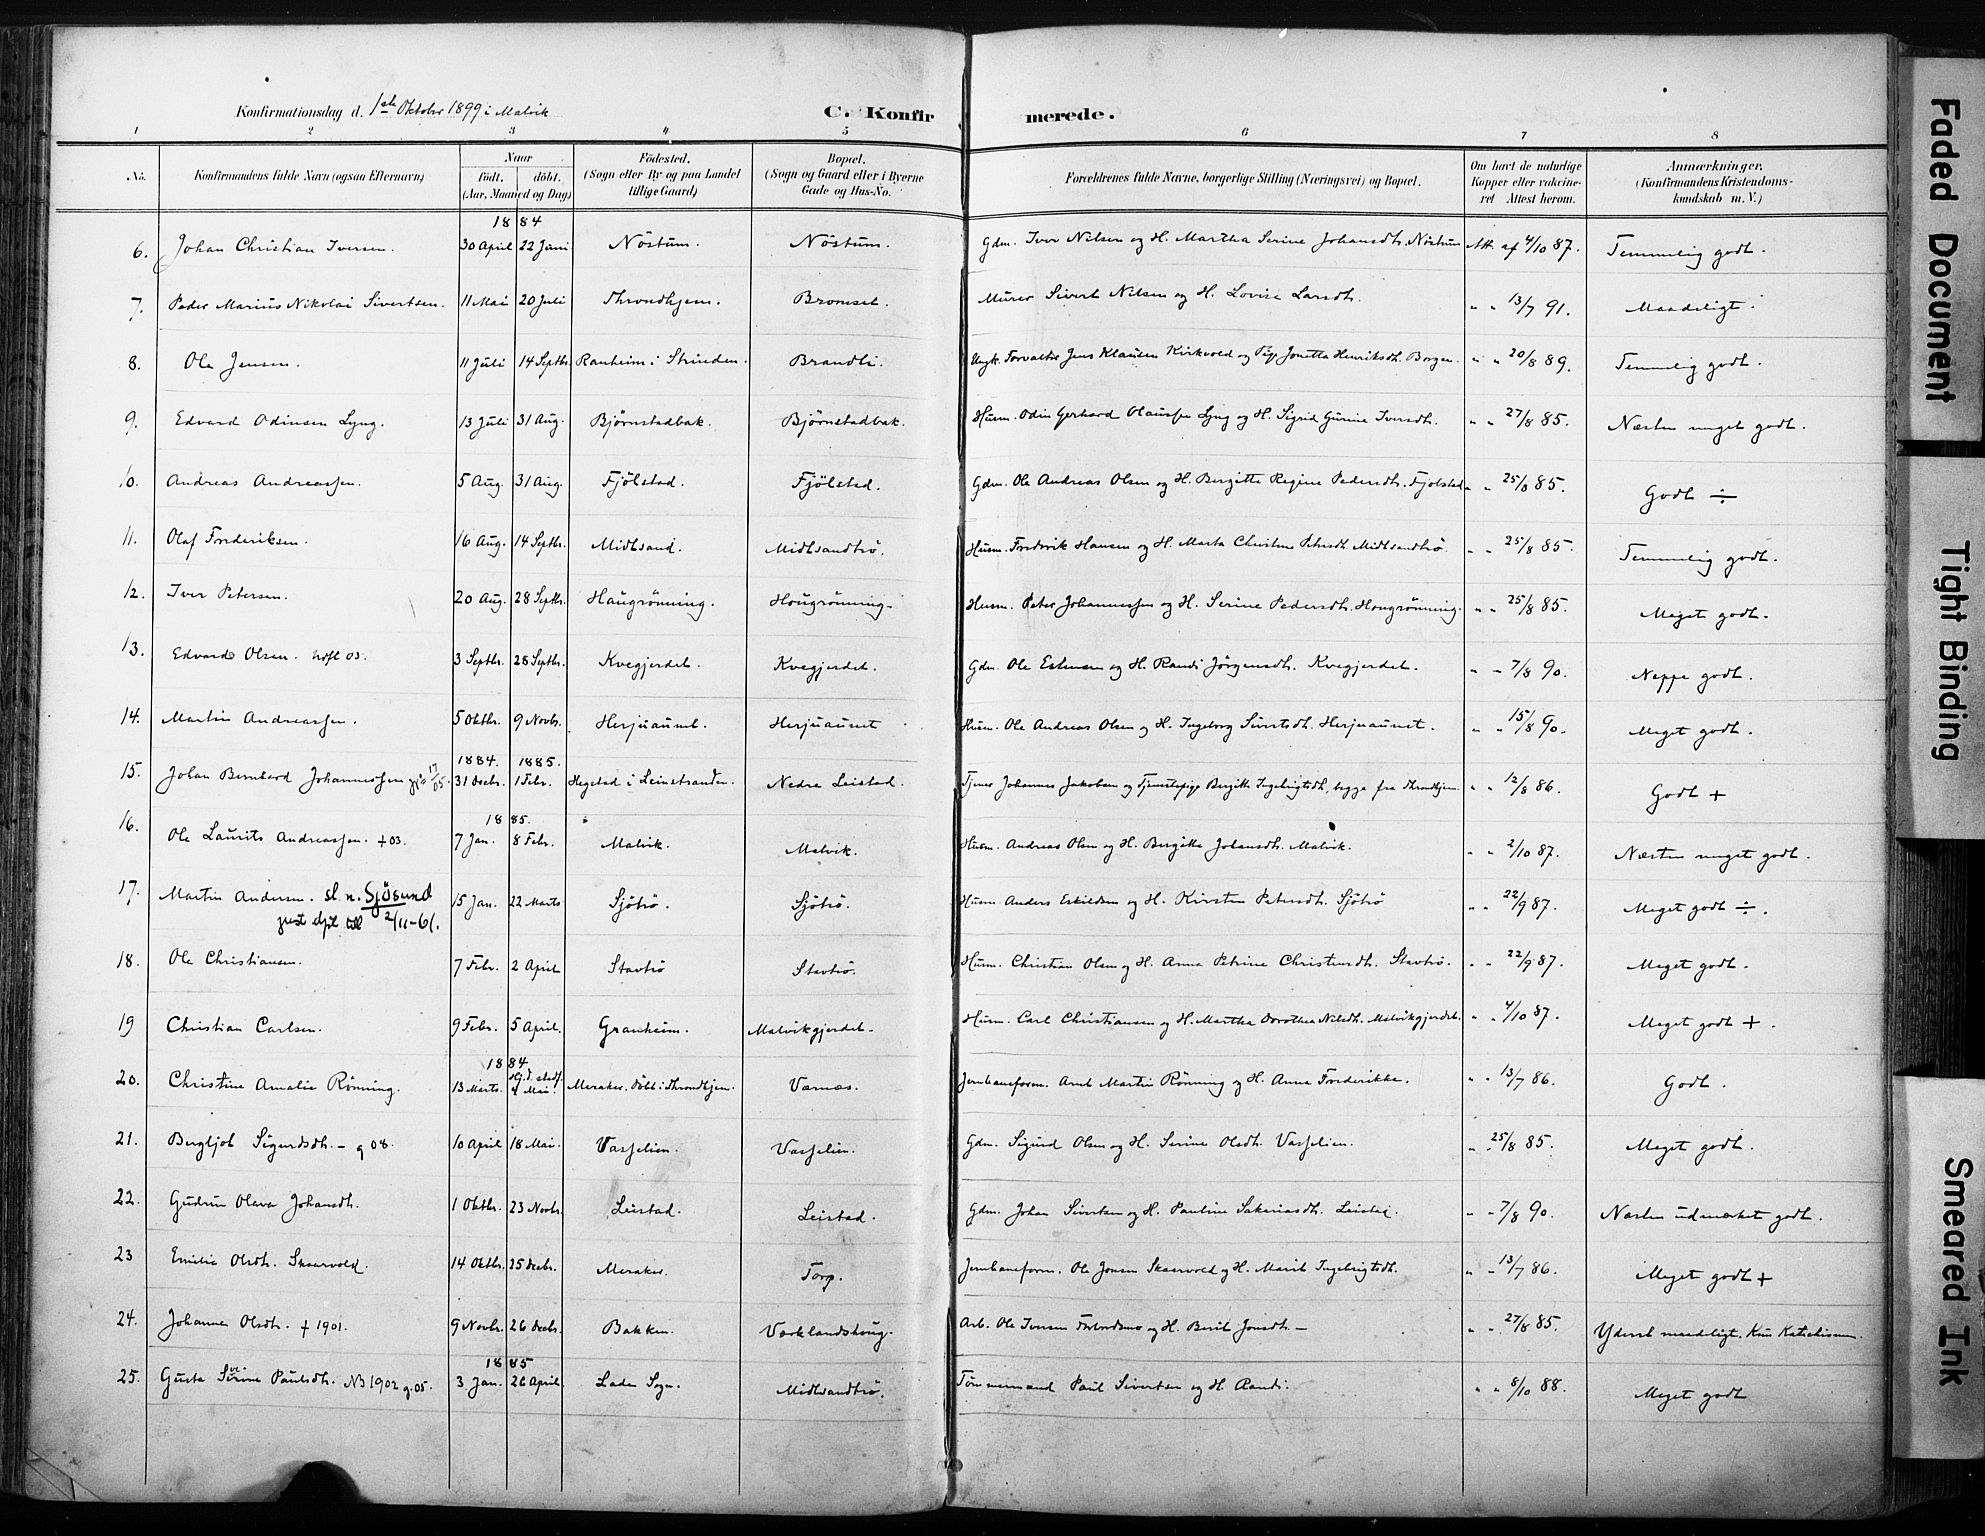 Konfirmationsdag d. 1ste Oktober 1899 i Malvik
C. Konfirmerede.
1 2 3 4 5 6 7 8
No. Konfirmandens fulde Navn (ogsaa Efternavn) Naar født. døbt. (Aar, Maaned og Dag) Födested. (Sogn eller By og paa Landet tillige Gaard) Bopæl. (Sogn og Gaard eller i Byerne Gade og Hus-No. Forældrenes fulde Navne, borgerlige Stilling (Næringsvei) og Bopæl. Om havt de naturlige Kopper eller vakcineret Attest herom. Anmærkninger. (Konfirmandens Kristendomskundskab m. V.)
1884
6. Johan Christian Iversen. 30 April 22 Juni Nöstum. Nöstum. Gdm. Iver Nilsen og H. Martha Serine Johansdt. Nöstum Att. af 4/10 87. Temmelig godt.
7. Peder Marius Nikolai Sivertsen. 11 Mai 20 Juli Throndhjem. Bromset. Murer Sivert Nilsen og H. Lovise Larsdt. " " 13/7 91. Maadeligt.
8. Ole Jensen. 11 Juli 14 Septbr. Ranheim i Strinden. Brandli. Ungk. Forvalter Jens Klausen Kirkvold og Pige Jonetta Henriksdt. Borgen. " " 20/8 89. Temmelig godt.
9. Edvard Odinsen Lyng. 13 Juli 31 Aug. Bjørnstadbak. Bjørnstadbak. Husm. Odin Gerhard Olaussen Lyng og H. Sigrid Gurine Iversdt. " " 27/8 85. Næsten meget godt.
10. Andreas Andreassen. 5 Aug. 31 Aug. Fjölstad. Fjölstad. Gdm. Ole Andreas Olsen og H. Bergitte Regine Pedersdt. Fjölstad " " 25/8 85. Godt ÷
11. Olaf Frederiksen. 16 Aug. 14 Septbr. Midtsand. Midtsandtrö. Husm. Fredrik Hansen og H. Marta Christine Petersdt. Midtsandtrö. " " 25/8 85. Temmelig godt.
12. Iver Petersen. 20 Aug. 28 Septbr. Haugrönning. Hougrönning. Husm. Peter Johannessen og H. Serine Pedersdt. Hougrönning. " " 25/8 85. Meget godt.
13. Edvard Olsen. 03. 3 Septbr. 28 Septbr. Kvegjerdet. Kvegjerdet. Gdm. Ole Estensen og H. Randi Jörgensdt. Kvegjerdet. " " 7/8 90. Neppe godt.
14. Martin Andreassen. 5 Oktbr. 9 Novbr. Herjuaunet. Herjuaunet Husm. Ole Andreas Olsen og H. Ingeborg Sivertsdt. Herjuaunet. " " 15/8 90. Meget godt.
1884. 1885.
15. Johan Bernhard Johannessen 17/ 05. 31 Decbr. 1 Febr. Hegstad i Leinstranden. Nedre Leistad. Tjener Johannes Jakobsen og Tjenestepige Bergitte Ingebrigtsdt, begge fra Throndhjem. " " 12/8 86. Godt +
1885.
16. Ole Laurits Andreassen. +03. 7 Jan. 8 Febr. Malvik. Malvik. Husm. Andreas Olsen og H. Bergitte Johansdt. Malvik. " " 2/10 87. Næsten meget godt.
17. Martin Andersen. sl. n. Sjösund 15 Jan. 22 Marts Sjötrö. Sjötrö. Husm. Anders Eskildsen og H. Kirsten Petersdt. Sjötrö " " 22/9 87. Meget godt ÷.
till 2/11-61.
18. Ole Christiansen. 7 Febr. 2 April Stavtrö Stavtrö. Husm. Christian Olsen og H. Anna Petrine Christensdt. Stavtrö. " " 22/9 87. Meget godt.
19 Christian Carlsen. 9 Febr. 5 April. Granheim. Malvikgjerdet. Husm. Carl Christiansen og H. Martha Dorothea Nilsdt. Malvikgjerdet. " " 4/10 87. Meget godt +.
1884
20. Christine Amalie Rönning. 13 Marts. Hj.d. stadf. 4 Mai. Meraker. Döbt i Throndhjem. Værnes. Jernbaneform. Arnt Martin Rönning og H. Anna Frederikke. " " 13/7 86. Godt.
21. Bergljot Sigurdsdt. – g 08. 10 April 18 Mai. Vasselien. Vasselien. Gdm. Sigurd Olsen og H. Serine Olsdt. Vasselien. " " 25/8 85. Meget godt.
22. Gudrun Olava Johansdt. 1 Oktbr. 23 Novbr. Leistad. Leistad. Gdm. Johan Sivertsen og H. Pauline Sakariasdt. " " 7/8 90. Næsten udmærket godt.
23 Emilie Olsdt. Skaarvold. 14 Oktbr. 25 Decbr. Meraker. Torp. Jernbaneform. Ole Jonsen Skaarvold og H. Marit Ingebrigtsdt. " " 13/7 86. Meget godt +
24. Johanna Olsdt. + 1901. 9 Novbr. 26 Decbr. Bakken. Værklandshoug. Arb. Ole Iversen og H. Berit Jonsdt. – " " 27/8 85. Yderst maadeligt. Kun Katekismen.
1885
25. Gusta Serine Paulsdt. NB 1902 g. 05. 3 Jan. 26 April. Lade Sogn. Midtsandtrö. Tömmermand Paul Sivertsen og H. Randi. " " 8/10 88. Meget godt
Faded Document
Tight Binding
Smeared Ink